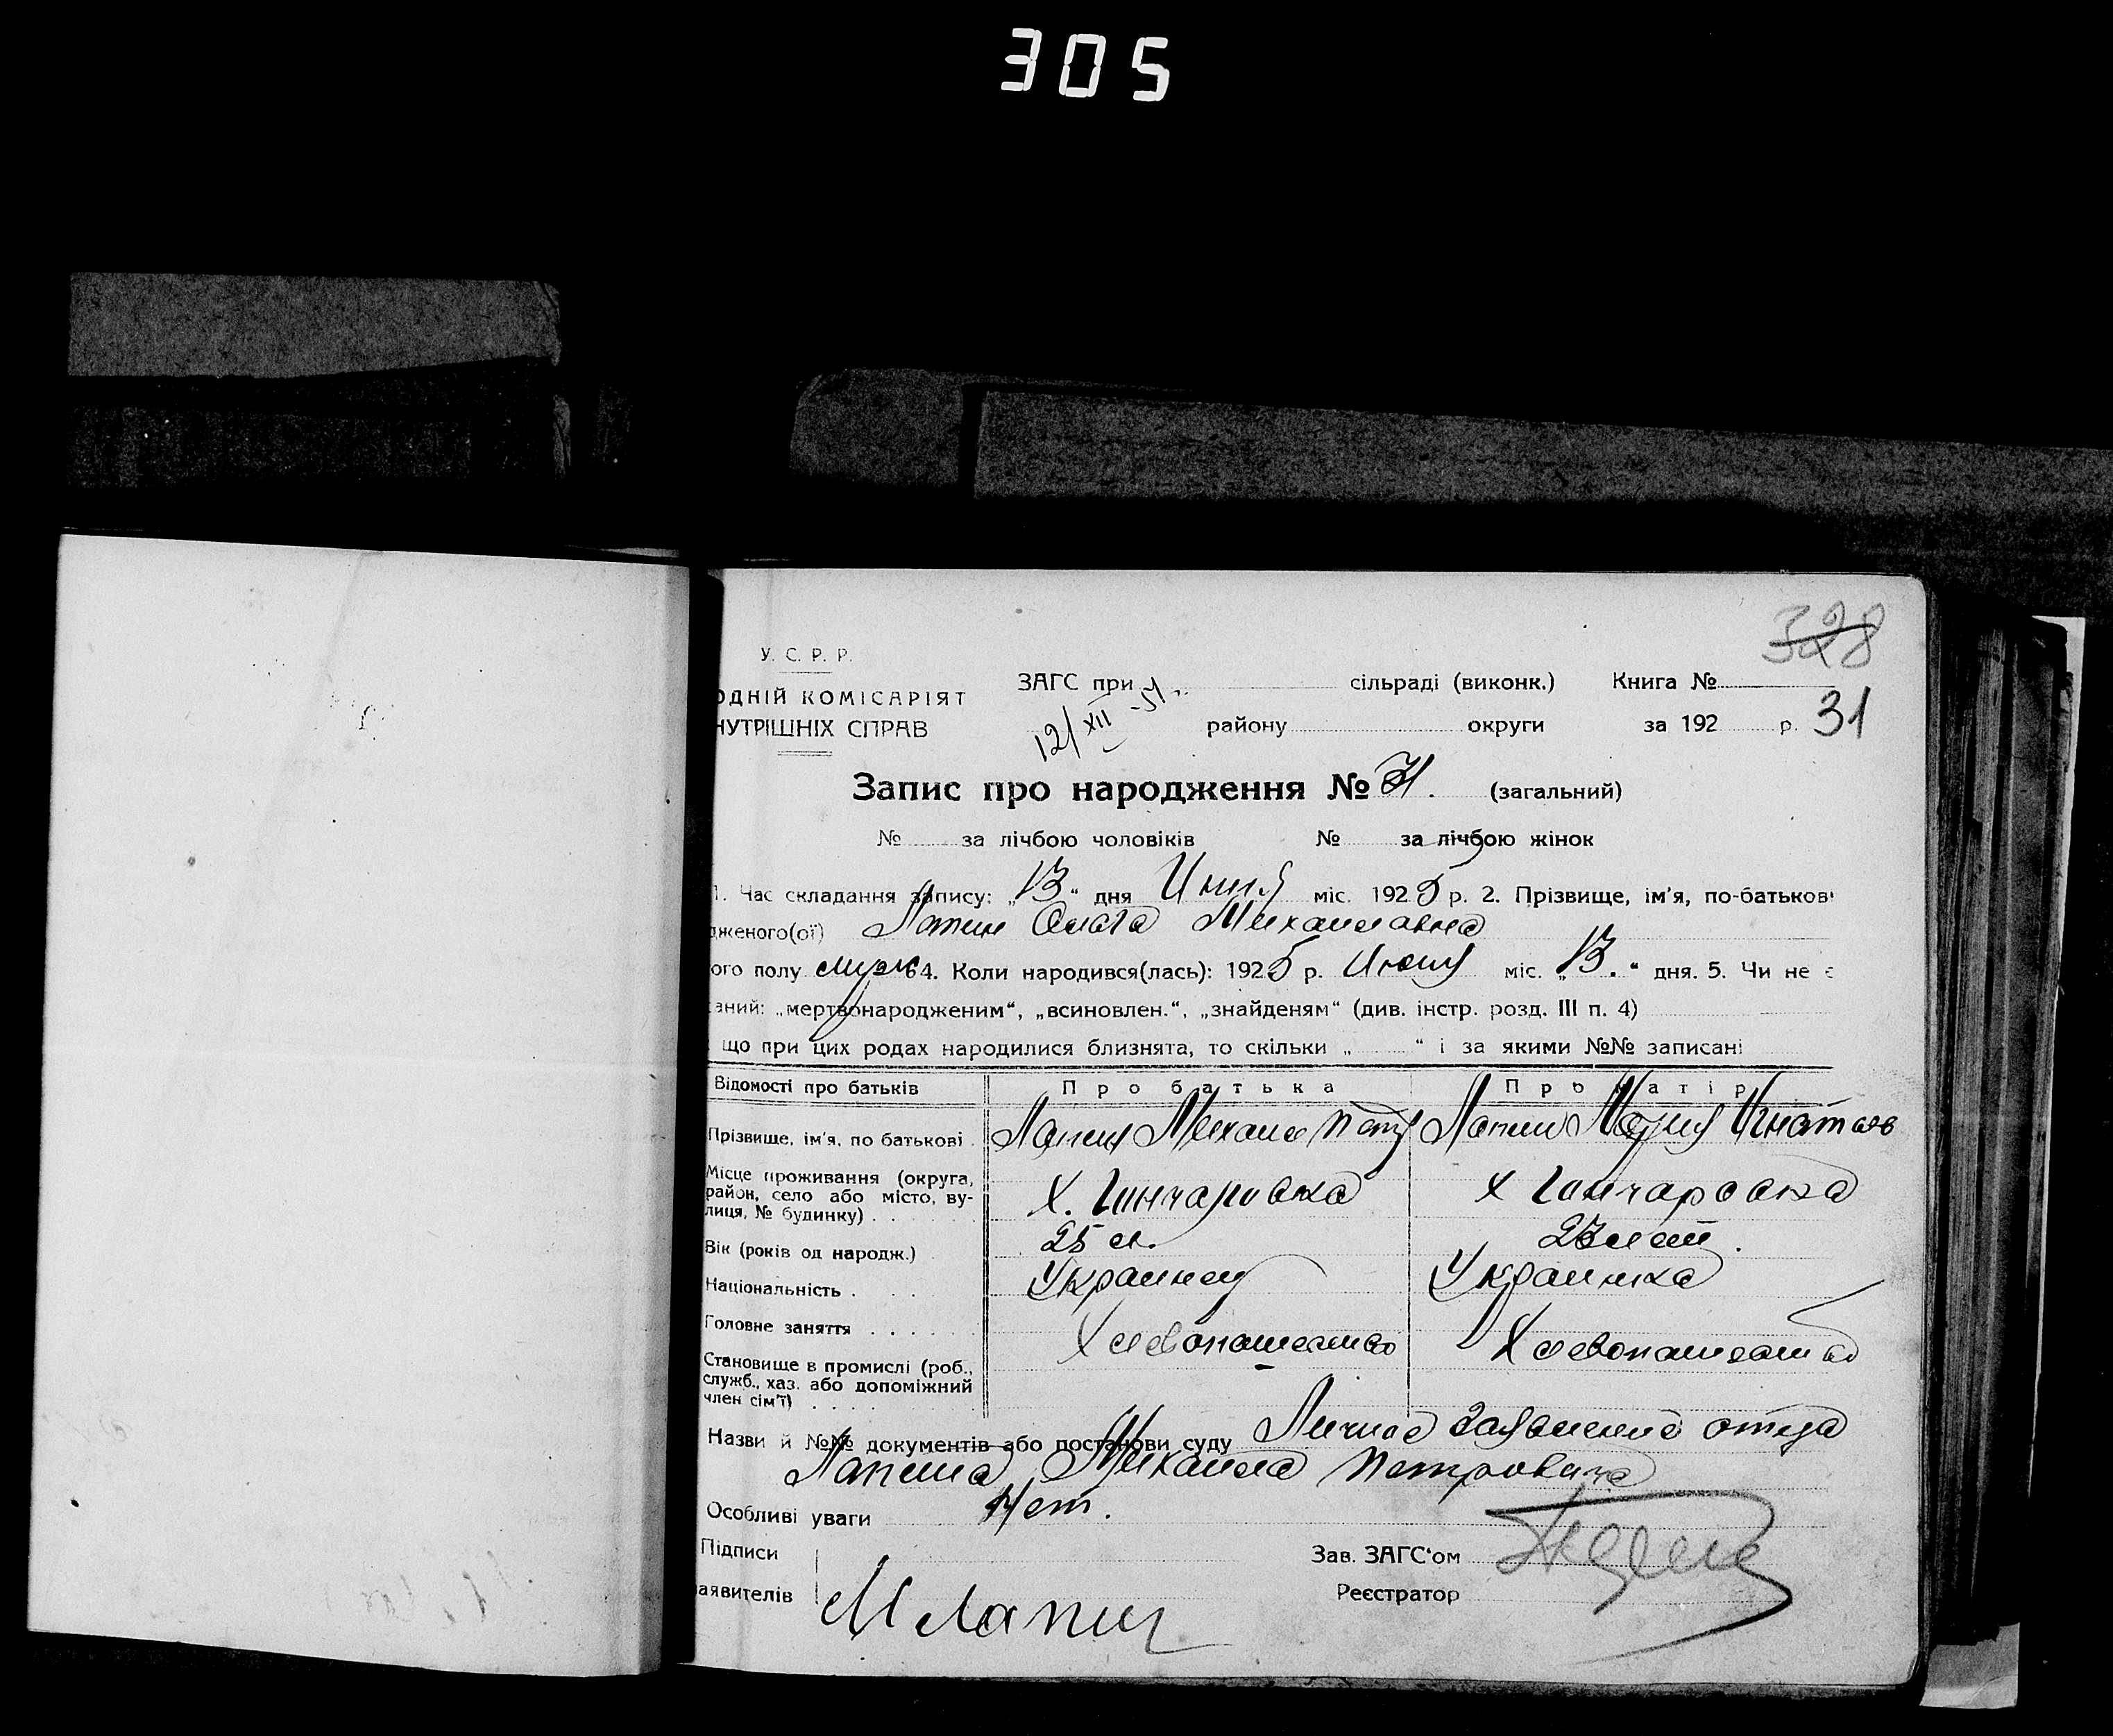 305
328
У. С. Р. Р.
ОДНІЙ КОМІСАРІЯТ
НУТРІШНІХ СПРАВ
ЗАГС при сільраді (виконк.) Книга №
12/XII -51 району округи за 192 р. 31
Запис про народження № 31. (загальний)
№ за лічбою чоловіків № за лічбою жінок
1. Час складання запису: „13“ дня Июня міс. 1925 р. 2. Прізвище, ім'я, по-батькові
дженого(ої) Лапин Ольга Михаиловна
ого полу 4. Коли народився(лась): 1925 р. Июня міс. „13.“ дня. 5. Чи не є
аний: „мертвонародженим“, „всиновлен.“, „знайденям“ (див. інстр. розд. III п. 4)
що при цих родах народилися близнята, то скільки „ “ і за якими №№ записані
Відомості про батьків Про батька Про матір
Прізвище, ім'я, по батькові Лапин Михаил Петр Лапин Мария Игнатьев
Місце проживання (округа, район, село або місто, вулиця, № будинку) Х. Гончаровка Х Гончаровка
Вік (років од народж.) 25 л. 23 лет.
Національність Украинец Украинка
Головне заняття Хлебопашество Хлебопашество
Становище в промислі (роб., служб., хаз. або допоміжний член сім'ї)
Назви й №№ документів або постанови суду Личное заявление отца
Лапина Михаила Петровича
Особливі уваги Нет.
Підписи Зав. ЗАГС'ом
аявителів М Лапин Реєстратор